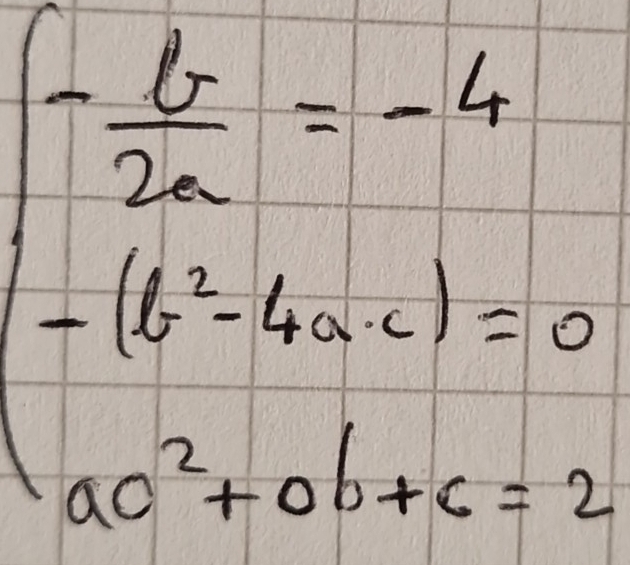 - b/2a = - 4
- (b² - 4a·c) = 0
a0² + 0b + c = 2